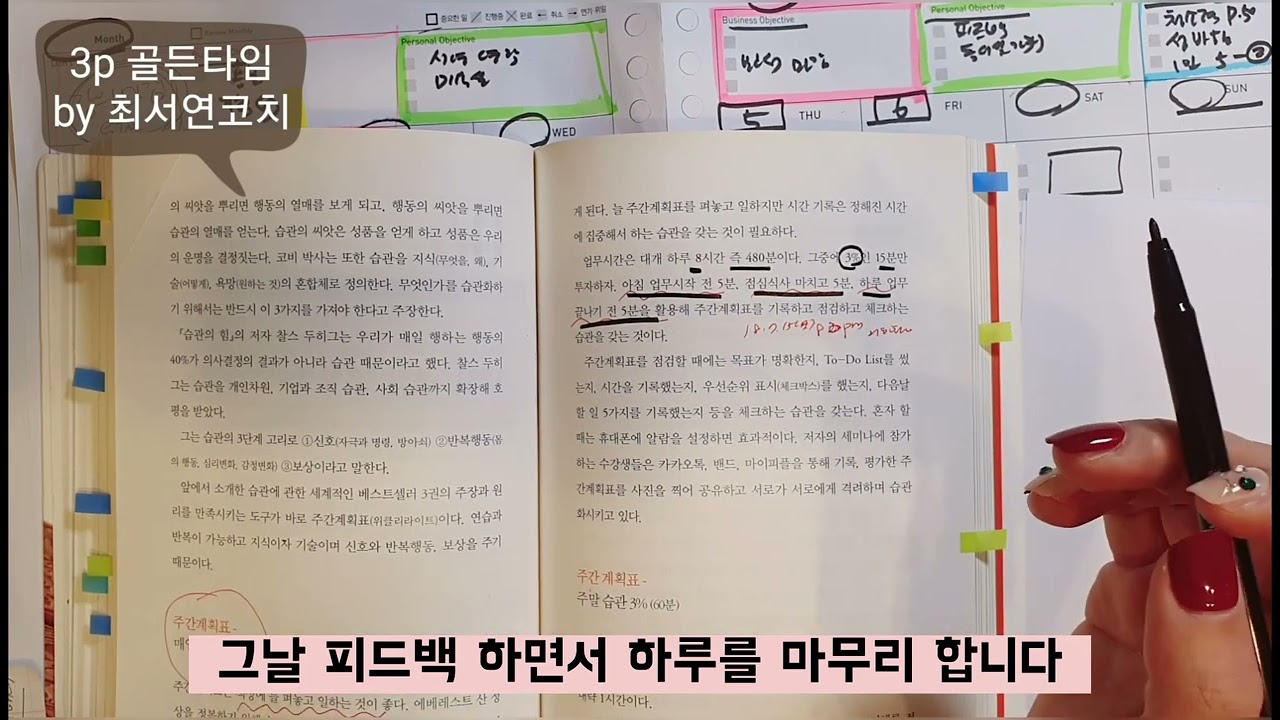 3p 골든타임
by 최서연코치
Month
중요한 일 진행중 완료 취소 연기·위임
Personal Objective
미술
WED
Business Objective
5 THU
Personal Objective
6 FRI
SAT
P.50
SUN
의 씨앗을 뿌리면 행동의 열매를 보게 되고, 행동의 씨앗을 뿌리면
습관의 열매를 얻는다. 습관의 씨앗은 성품을 얻게 하고 성품은 우리
의 운명을 결정짓는다. 코비 박사는 또한 습관을 지식(무엇을, 왜), 기
술(어떻게), 욕망(원하는 것)의 혼합체로 정의한다. 무엇인가를 습관화하
기 위해서는 반드시 이 3가지를 가져야 한다고 주장한다.
『습관의 힘』의 저자 찰스 두히그는 우리가 매일 행하는 행동의
40%가 의사결정의 결과가 아니라 습관 때문이라고 했다. 찰스 두히
그는 습관을 개인차원, 기업과 조직 습관, 사회 습관까지 확장해 호
평을 받았다.
그는 습관의 3단계 고리로 ①신호(자극과 명령, 방아쇠) ②반복행동(몸
의 행동, 심리변화, 감정변화) ③보상이라고 말한다.
앞에서 소개한 습관에 관한 세계적인 베스트셀러 3권의 주장과 원
리를 만족시키는 도구가 바로 주간계획표(위클리라이트)이다. 연습과
반복이 가능하고 지식이자 기술이며 신호와 반복행동, 보상을 주기
때문이다.
주간계획표 -
펴놓고 일하는 것이 좋다. 에베레스트 산 정
게 된다. 늘 주간계획표를 펴놓고 일하지만 시간 기록은 정해진 시간
에 집중해서 하는 습관을 갖는 것이 필요하다.
업무시간은 대개 하루 8시간 즉 480분이다. 그중에 3%인 15분만
투자하자. 아침 업무시작 전 5분, 점심식사 마치고 5분, 하루 업무
끝나기 전 5분을 활용해 주간계획표를 기록하고 점검하고 체크하는
습관을 갖는 것이다.
주간계획표를 점검할 때에는 목표가 명확한지, To-Do List를 썼
는지, 시간을 기록했는지, 우선순위 표시(체크박스)를 했는지, 다음날
할 일 5가지를 기록했는지 등을 체크하는 습관을 갖는다. 혼자 할
때는 휴대폰에 알람을 설정하면 효과적이다. 저자의 세미나에 참가
하는 수강생들은 카카오톡, 밴드, 마이피플을 통해 기록, 평가한 주
간계획표를 사진을 찍어 공유하고 서로가 서로에게 격려하며 습관
화시키고 있다.
주간계획표 -
주말 습관 3% (60분)
1시간이다.
그날 피드백 하면서 하루를 마무리 합니다